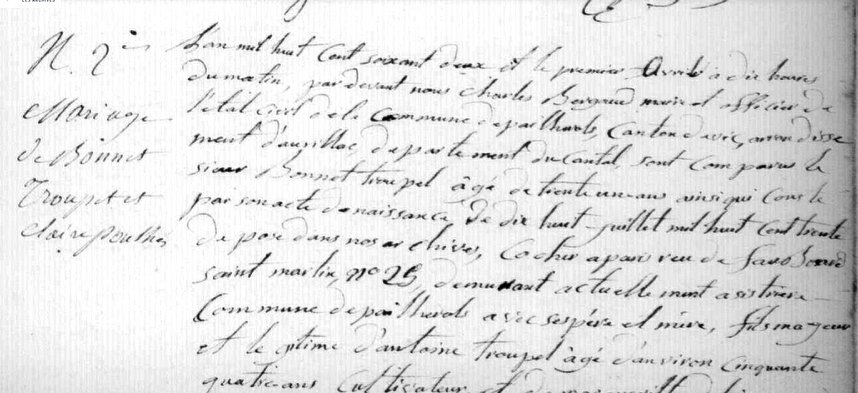 N. 2
Mariage
de Bonnet
Troupel et
Claire poulhès
L'an mil huit Cent soixant deux et le premier Avril à dix heures
du matin, par devant nous Charles Bergaud maire et officier de
l'état Civil de la Commune de pailherols, Canton de vic, arrondisse
ment d'aurillac, departement du Cantal, sont Comparus le
sieur Bonnet troupel âgé de trente un ans ainsi qui Conste
par son acte de naissance de dix huit juillet mil huit Cent trente
de posé dans nos archives, Cocher a paris reu de
saint martin, n° 25, demurant actuelle ment a
Commune de pailherols avec ses père et mère, fils majeur
et le gitime d'antoine troupel âgé d'anviron Cinquante
quatre ans Cultivateur et de